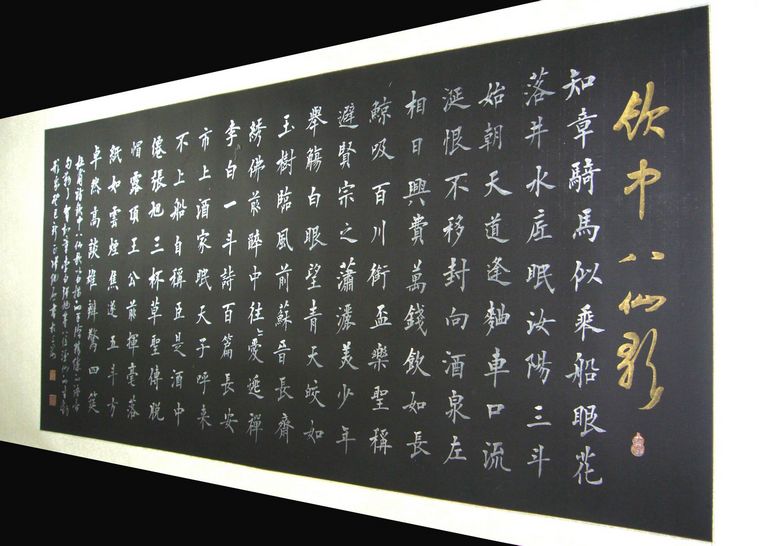 飲中八仙歌
知章騎馬似乘船眼花
落井水底眠汝陽三斗
始朝天道逢麯車口流
涎恨不移封向酒泉左
相日興費萬錢飲如長
鯨吸百川銜盃樂聖稱
避賢宗之瀟灑美少年
舉觴白眼望青天皎如
玉樹臨風前蘇晉長齋
綉佛前醉中往々愛逃禪
李白一斗詩百篇長安
市上酒家眠天子呼来
不上船自稱臣是酒中
僊張旭三杯草聖傳脱
帽露頂王公前揮毫落
紙如雲煙焦遂五斗方
卓然高談雄辯驚四筵